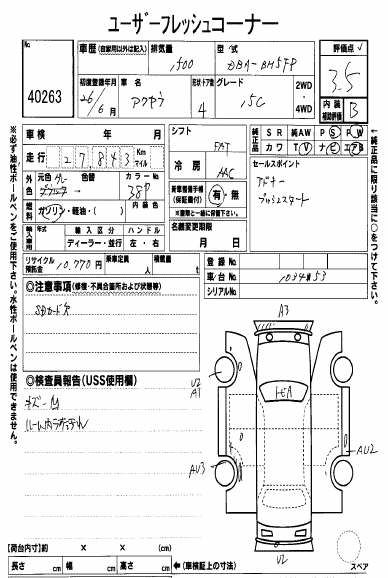 ユーザーフレッシュコーナー
No.
40263
車歴 (自家用以外は記入)
排気量
1500
型式
DBA-BM5FP
評価点
3.5
初度登録年月
26/6
車名
アクセラ
形状・ドア数
4
グレード
15C
2WD
4WD
内装
補助評価
B
※必ず油性ボールペンをご使用下さい。水性ボールペンは使用できません。
車検 年 月
走行
27,843
Km
マイル
外色
元色
色替
カラーNo
38P
燃料
ガソリン・軽油・( )
内装色
輸入車
年式
輸入区分
ハンドル
ディーラー・並行
左・右
リサイクル預託金
10,770円
乗車定員
人
積載量
シフト
FAT
冷房
AAC
新車整備手帳
(保証書付)
有・無
※書類と一緒に保管下さい。
名義変更期限
月 日
純正品
SR
純AW
PS
PW
カワ
TV
ナビ
エアB
※純正品に限り該当に○をつけて下さい
セールスポイント
アドナー
プッシュスタート
登録No.
車台No.
1034853
シリアルNo.
◎注意事項 (修復・不具合箇所および状態等)
SDカード欠
◎検査員報告 (USS使用欄)
キズ凹
ルーム内ヨゴレ
A3
U2
A1
AU3
AU2
U2
スペア
【荷台内寸】約 × × (cm)
長さ cm 幅 cm 高さ cm ←(車検証上の寸法)